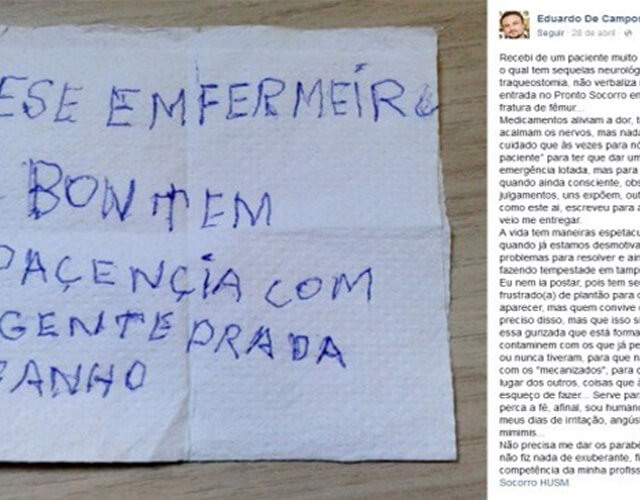 ESE EMFERMEIRO
BON TEM
PAÇENÇIA COM
GENTE PRA DA
BANHO
Eduardo De Campos
Seguir · 28 de abril ·
Recebi de um paciente muito
o qual tem sequelas neurológ
traqueostomia, não verbaliza
entrada no Pronto Socorro em
fratura de fêmur...
Medicamentos aliviam a dor, t
acalmam os nervos, mas nada
cuidado que às vezes para nó
paciente" para ter que dar um
emergência lotada, mas para
quando ainda consciente, obs
julgamentos, uns expõem, out
como este aí, escreveu para a
veio me entregar.
A vida tem maneiras espetacu
quando já estamos desmotiva
problemas para resolver e ain
fazendo tempestade em tamp
Eu nem ia postar, pois tem se
frustrado(a) de plantão para c
aparecer, mas quem convive c
preciso disso, mas que isso si
essa gurizada que está forma
contaminem com os que já pe
ou nunca tiveram, para que n
com os "mecanizados", para c
lugar dos outros, coisas que à
esqueço de fazer... Serve par
perca a fé, afinal, sou human
meus dias de irritação, angús
mimimis...
Não precisa me dar os parabé
não fiz nada de exuberante, fi
competência da minha profiss
Socorro HUSM